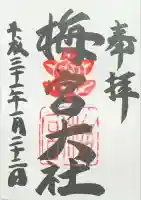 奉拝
梅宮大社
平成三十一年一月二十二日